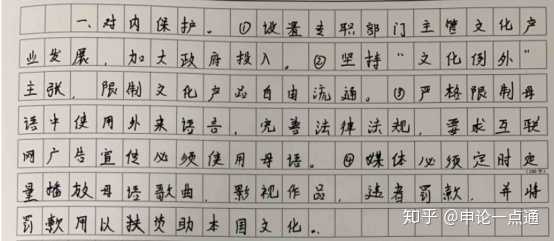 一、对内保护。①设置专职部门主管文化产
业发展，加大政府投入。②坚持“文化例外”
主张，限制文化产品自由流通。③严格限制母
语中使用外来语言，完善法律法规，要求互联
网广告宣传必须使用母语。④媒体必须定时定
量播放母语歌曲，影视作品，违者罚款，并将
罚款用以扶贫助本国文化。
知乎 @申论一点通